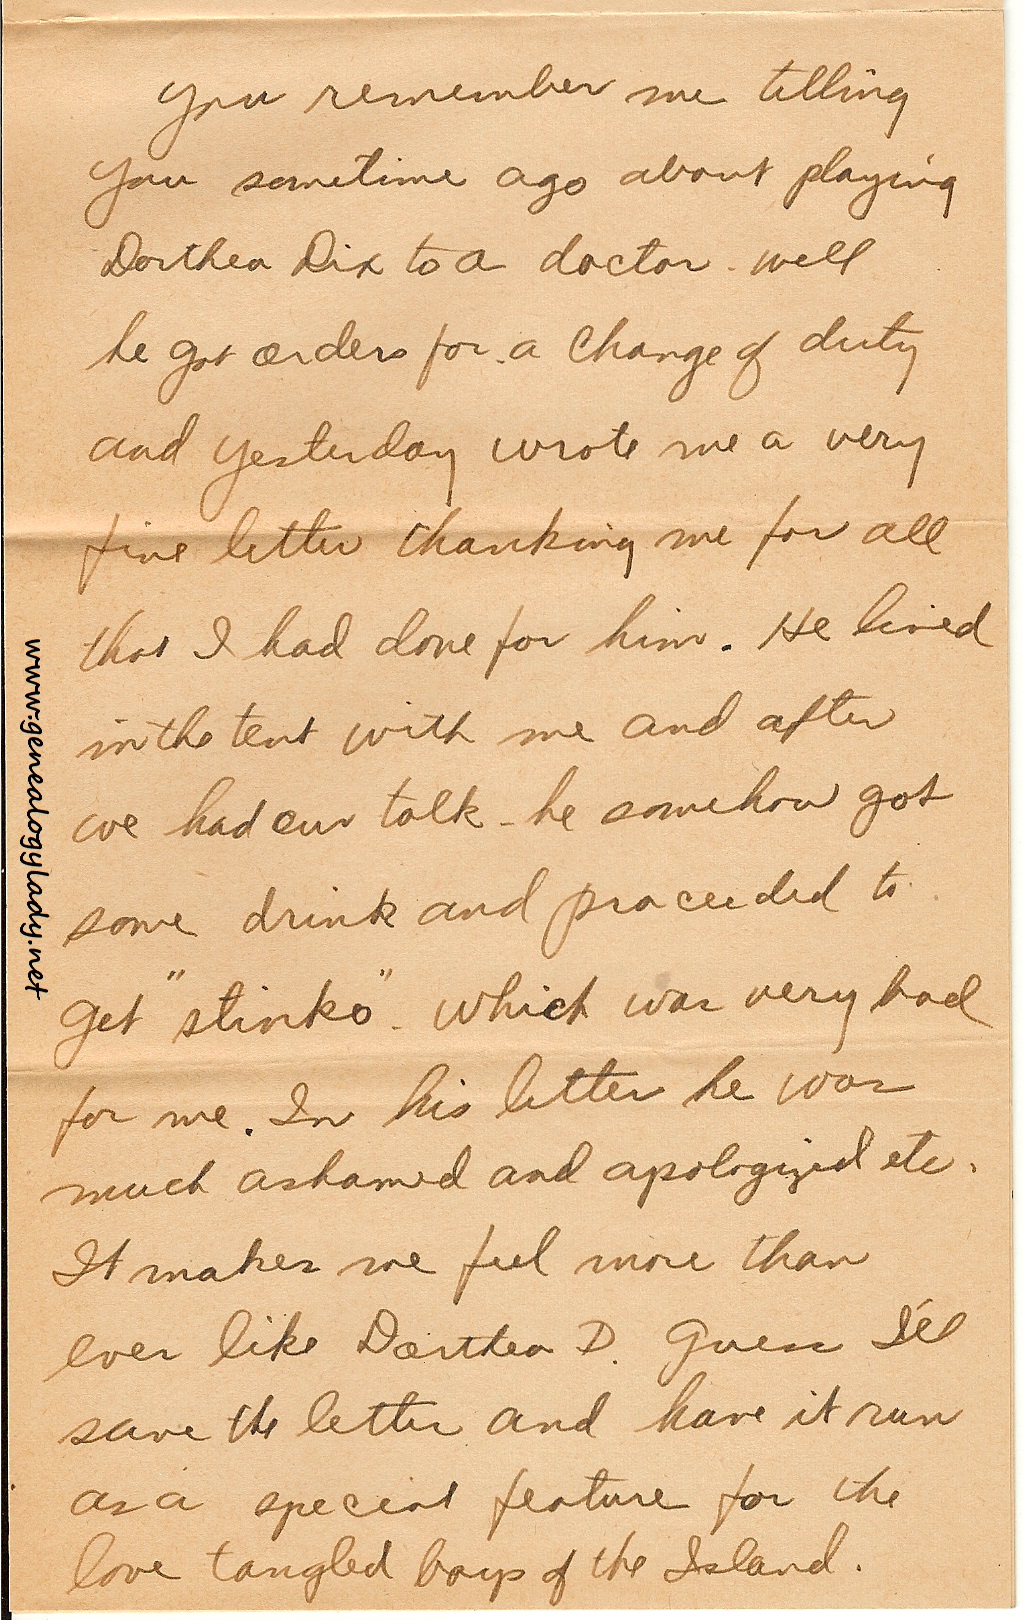 You remember me telling
you sometime ago about playing
Dorthea Dix to a doctor - well
he got orders for a change of duty
and yesterday wrote me a very
fine letter thanking me for all
that I had done for him. He lived
in the tent with me and after
we had our talk - he somehow got
some drink and proceeded to
get "stinko" - which was very bad
for me. In his letter he was
much ashamed and apologized etc.
It makes me feel more than
ever like Dorthea D. Guess I'll
save the letter and have it run
as a special feature for the
love tangled boys of the Island.
www.genealogylady.net